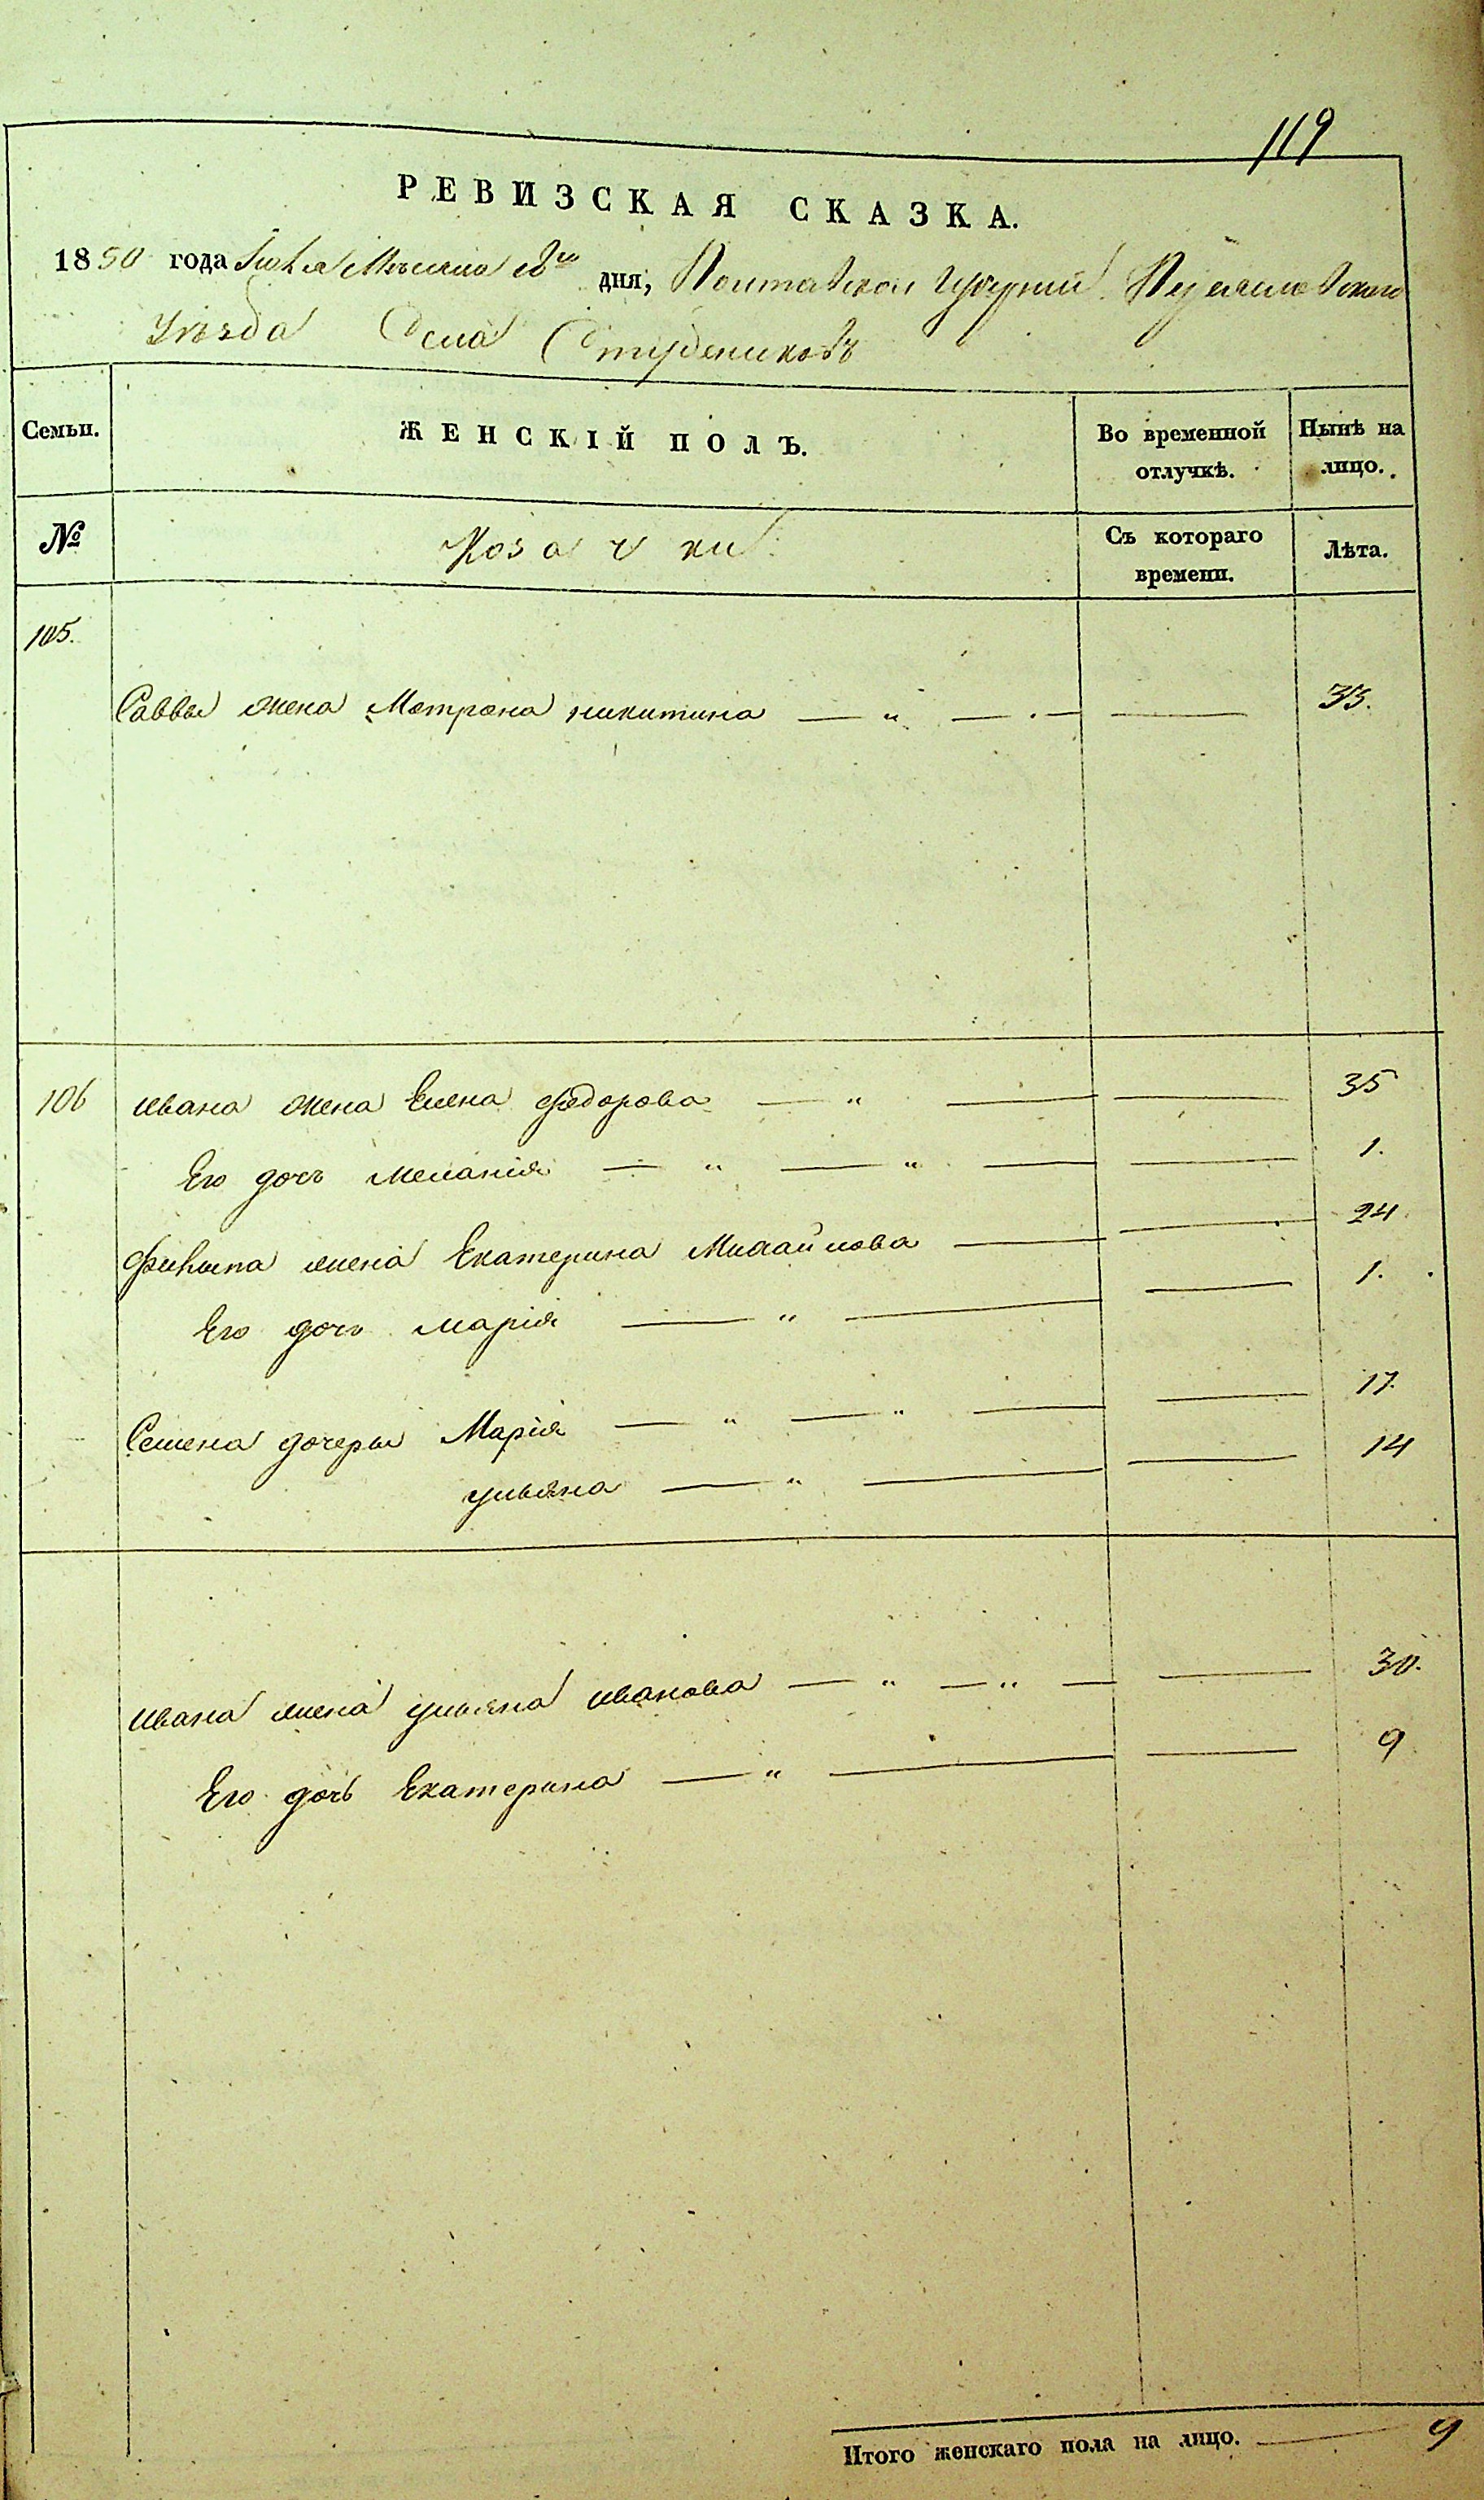 119
РЕВИЗСКАЯ СКАЗКА.
1850 года Іюля Месяца дня, Полтавской Губерніи Переяславскаго
Уѣзда Села Студениковъ
Семьи. ЖЕНСКІЙ ПОЛЪ. Во временной отлучкѣ. Нынѣ на лицо.
№ Козачки Съ котораго времени. Лѣта.
105.
Саввы жена Матрона никитина — „ — — 33.
106 Ивана жена Елена Федорова — „ — — 35
Его дочь меланія — „ — „ — — 1.
Филипа жена Екатерина Михайлова — — 24
Его дочь марія — „ — — 1.
Семена дочеры Марія — „ — „ — — 17.
ульяна — „ — — 14
Ивана жена ульяна иванова — „ — „ — — 30.
Его дочь Екатерина — „ — — 9
Итого женскаго пола на лицо. — 9